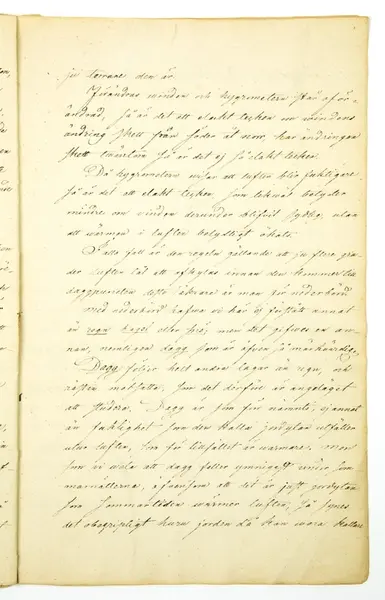 ju torrare den är.
Förändras winden och hygrometern står oför-
ändrad, så är det ett elakt tecken om windens
ändring skett från söder åt norr, har ändringen
skett twärtom så är det ej så elakt tecken.
Då hygrometern wisar att luften blir fuktigare
så är det ett elakt tecken, som likwäl betyder
mindre om winden derunder blifwit sydlig, utan
att wärmen i luften betydligt ökats.
I alla fall är den regeln gällande att ju flere gra-
der luften tål att afkylas innan den kommer till
daggpuncten desto säkrare är man för nederbörd
med nederbörd hafwa wi här ej förstått annat
än regn hagel eller snö; men det gifwes en an-
nan, nemligen dagg som är äfwen så märkwärdig.
Dagg följer helt andra lagar än regn, och
nästan motsatta, som det derföre är angeläget
att studera. Dagg är som förr nämndt, ej annat
än fuktighet som den kalla jordytan utfäller
utur luften, som för tillfället är warmare. Men
som wi weta att dagg faller ymnigast under som-
marnätterna, oansedt att det är just jordytan
som sommartiden wärmer luften, så synes
det obegripligt huru jorden då kan wara kallare